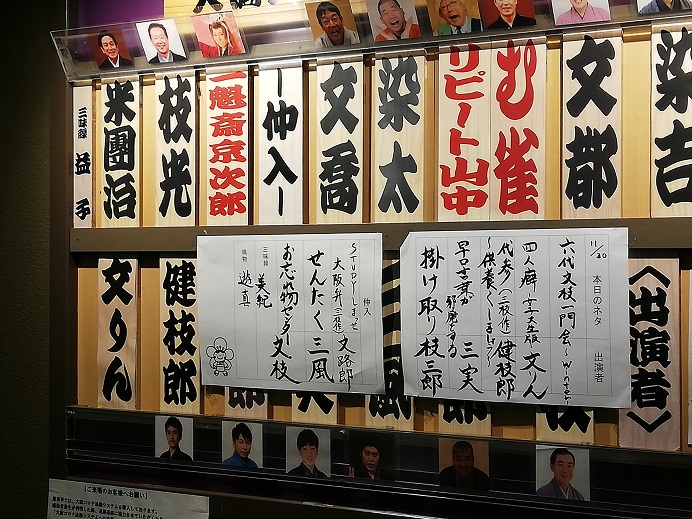 染吉
文都
む雀
リピート山中
染太
文喬
ー仲入ー
一魁斎京次郎
枝光
米團治
三味線 益子
〈出演者〉
健枝郎
文りん
11/20 本日のネタ 出演者
六代文枝一門会～winter
四人癖～女子大生版 文りん
代参(三枝作) 健枝郎
～供養くしまショウ～
早口言葉が邪魔をする 三実
掛け取り 枝三郎
仲入
STUDYしまっせ
大阪弁(三枝作) 文路郎
せんたく 三風
お忘れ物センター 文枝
三味線 美紀
鳴物 遊真
【ご来場のお客様へお願い】